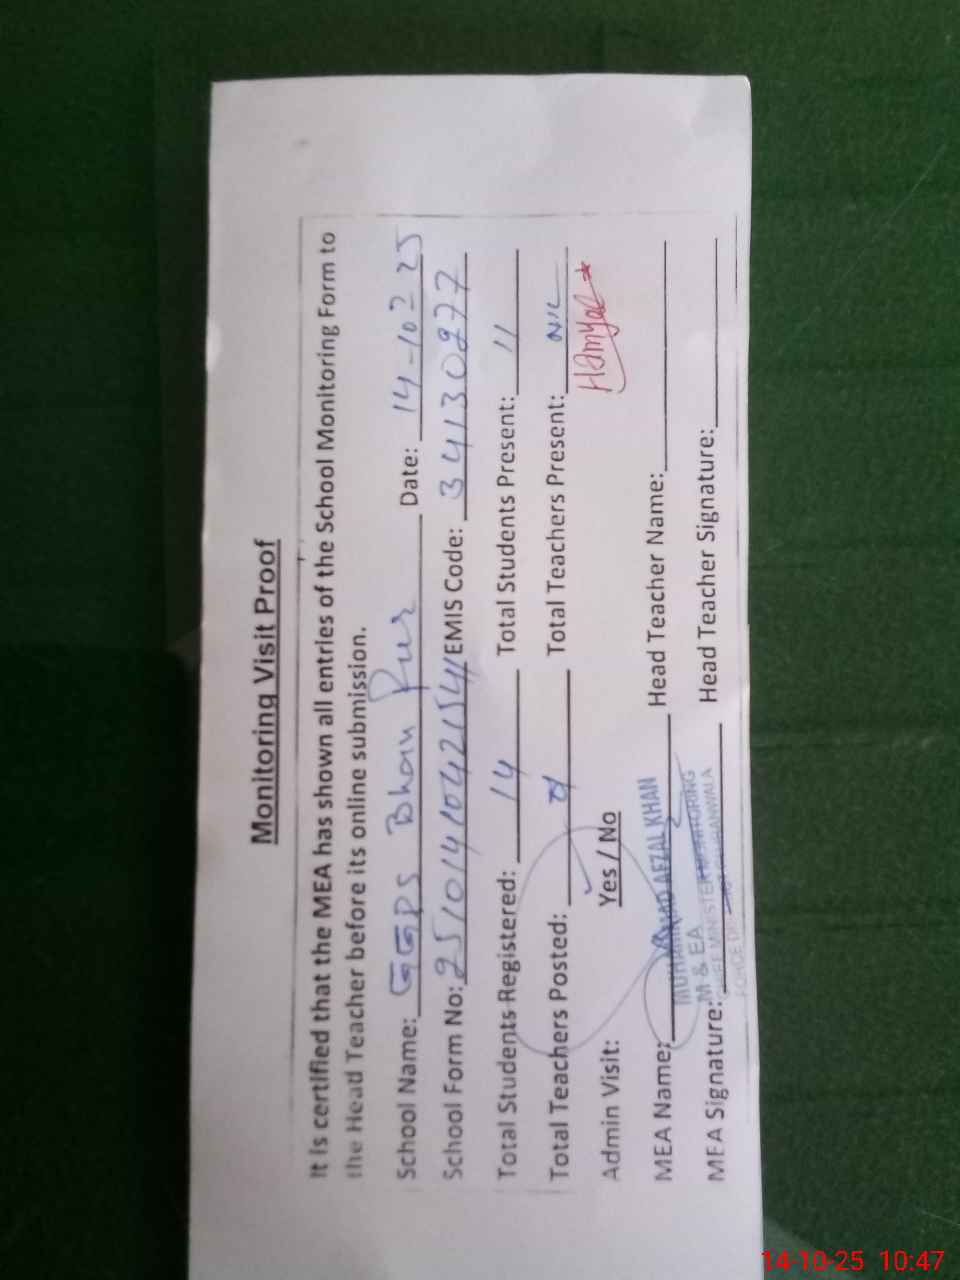 Monitoring Visit Proof
It is certified that the MEA has shown all entries of the School Monitoring Form to
the Head Teacher before its online submission.
School Name: GGPS Bhan Pur Date: 14-10-2025
School Form No: 251014104215411 EMIS Code: 34130277
Total Students Registered: 14 Total Students Present: 11
Total Teachers Posted: Total Teachers Present: NIL
Admin Visit: Yes / No
MEA Name: MUHAMMAD AFZAL KHAN Head Teacher Name:
MEA Signature: M & EA Head Teacher Signature:
CHIEF MINISTER MONITORING
FORCE
14-10-25 10:47